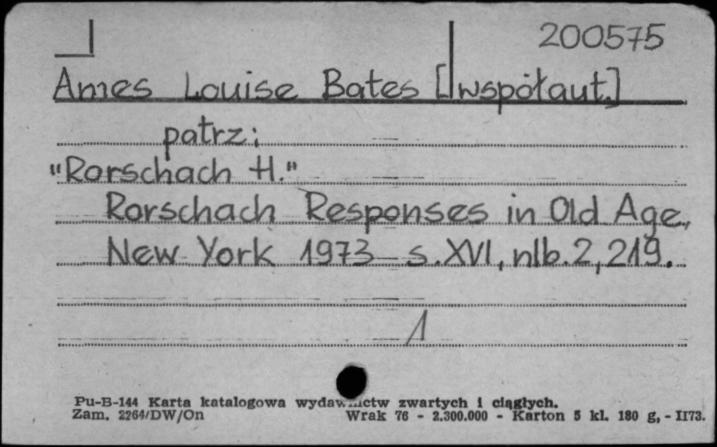 200575
Ames Louise Bates [współaut.]
patrz:
"Rorschach H."
Rorschach Responses in Old Age,
New York 1973 s.XVI, nlb.2, 219.
1
Pu-B-144 Karta katalogowa zwartych i ciągłych.
Zam. 2264/DW/On Wrak 76 - 2.300.000 - Karton 5 kl. 180 g, - II73.